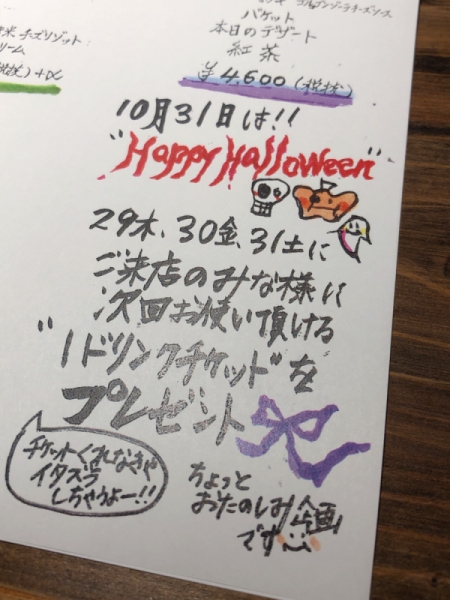 ゴルゴンゾーラチーズソース
バケット
米 チーズリゾット
本日のデザート
紅茶
税抜)+α
¥4,600(税抜)
10月31日は!!
"Happy Halloween"
29木、30金、31土に
ご来店のみな様に
次回お使い頂ける
"1ドリンクチケット"を
プレゼント
チケットくれなきゃ
イタズラ
しちゃうよー!!
ちょっと
おたのしみ企画
です